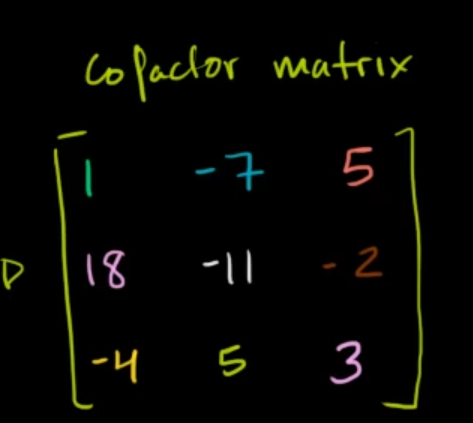 cofactor matrix
1 -7 5
18 -11 -2
-4 5 3